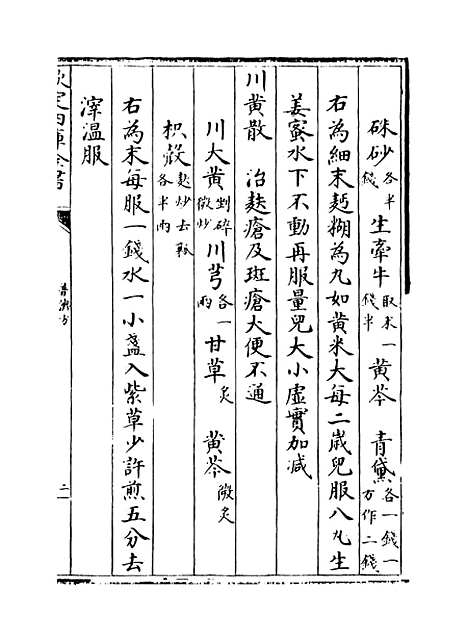 硃砂各半錢 生牽牛取末一錢半 黄芩 青黛各一錢一方作二錢
右為細末麪糊為丸如黄米大每二嵗兒服八丸生
姜蜜水下不動再服量兒大小虚實加减
川黄散 治麩瘡及斑瘡大便不通
川大黄剉碎微炒 川芎各一兩 甘草炙 黄芩微炙
枳殻麩炒去瓤各半兩
右為末每服一錢水一小盞入紫草少許煎五分去
滓温服
欽定四庫全書
普濟方
二